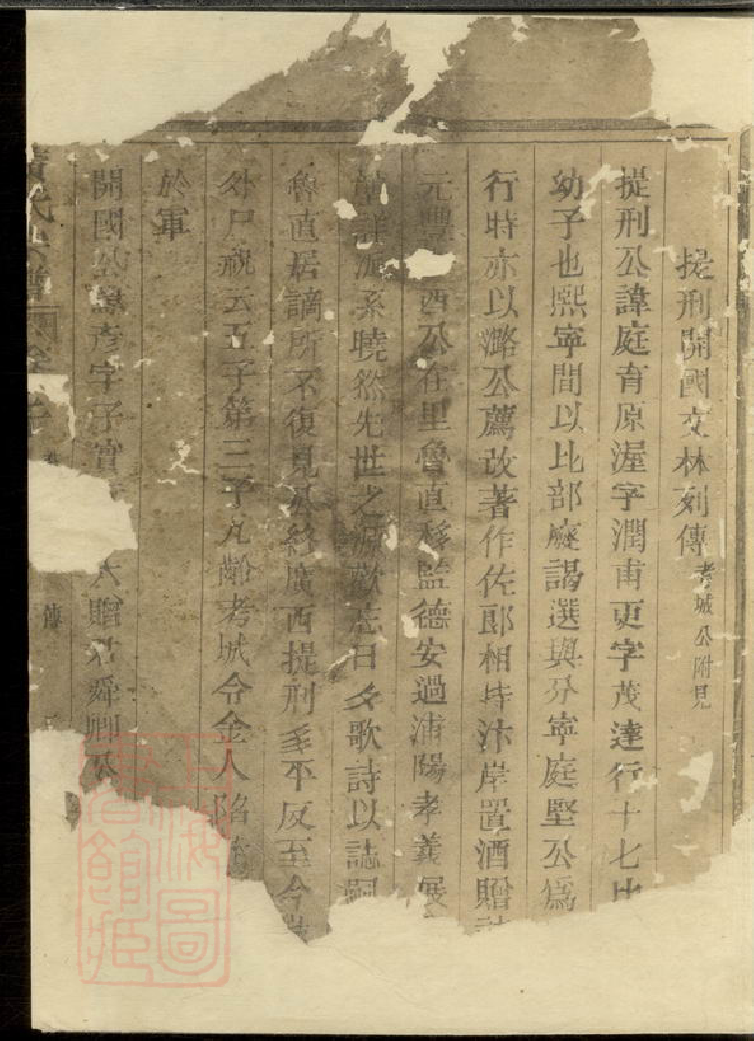 提刑開國文林列傳考城公附見
提刑公諱庭育原渥字潤甫更字茂達行十七比
幼子也熙寧間以比部廕謁選與分寧庭堅公爲
行時亦以潞公薦改著作佐郎相時汴岸置酒贈
元豐 西公在里魯直移監德安過浦陽孝義展
詳派系曉然先世之源歡忘日多歌詩以誌嗣
魯直居謫所不復見公終廣西提刑多平反至今
外尸祝云五子第三子九齡考城令金人陷
於軍
開國公諱彥字子實 大贈君舜卿公
黃氏宗譜 傳
上海圖書館藏